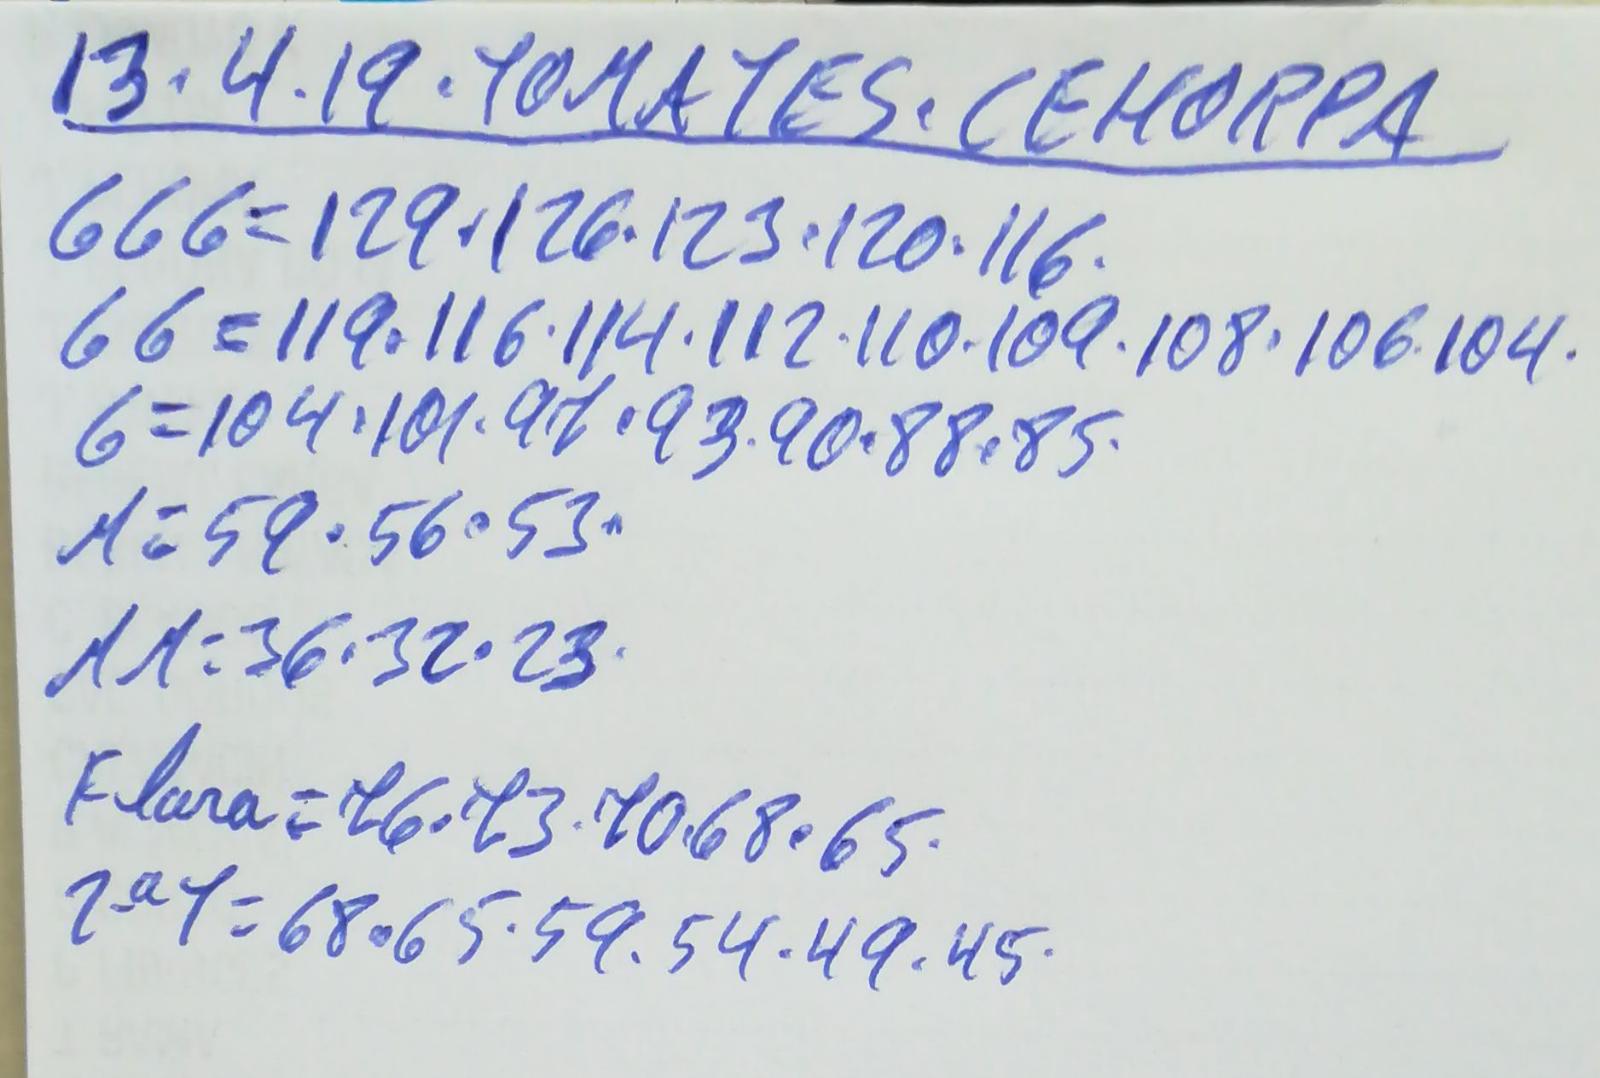 13.4.19.TOMATES.CEHORPA
666=129.126.123.120.116.
66=119.116.114.112.110.109.108.106.104.
6=104.101.97.93.90.88.85.
M=59.56.53.
MM=36.32.23.
Flara=76.73.70.68.65.
2ªT=68.65.59.54.49.45.